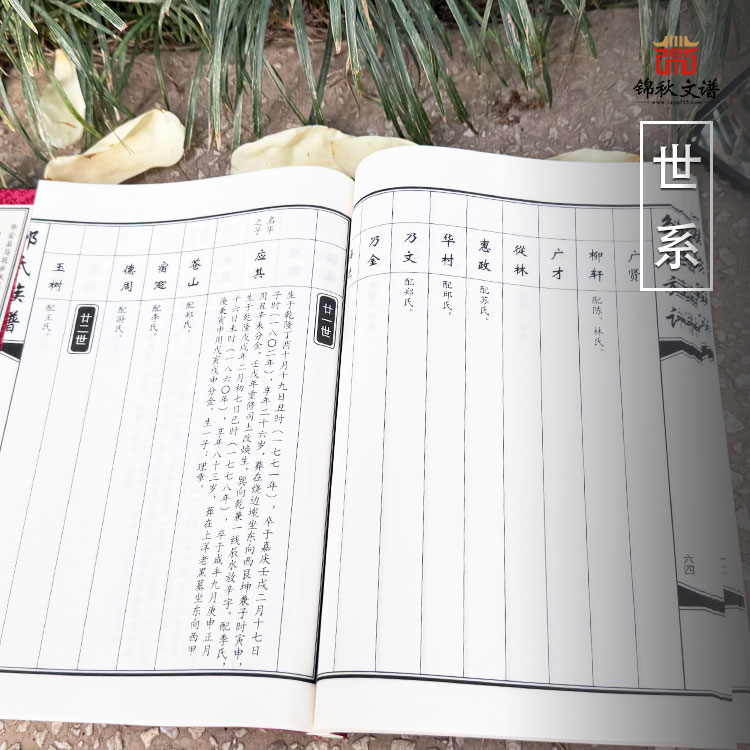 锦秋文谱
世系
广贤
柳轩 配陈、林氏。
广才
從林
惠政 配苏氏。
华村 配邱氏。
乃文 配郑氏。
乃金
六四
廿一世
名华之子
应其
生于乾隆丁酉十月十九日丑时（一七七一年），卒于嘉庆壬戌二月十七日
子时（一八〇二年），享年二十六岁，葬在烧边垅坐东向西艮坤兼子时寅申，
用丑辛未分金。壬戌年重修司土改焕生，巽向乾兼一线辰水放辛字，配李氏，
生于乾隆戊戌年二月初七日巳时（一七七八年），卒于咸丰九月庚申正月
十六日未时（一八六〇年），享年八十三岁，葬在上洋老黑墓坐东向西甲
庚兼寅申用戊寅戊申分金。生一子：理章。
苍山 配郑氏。
配李氏。
德周 配游氏。
廿二世
玉树 配王氏。
氏族谱